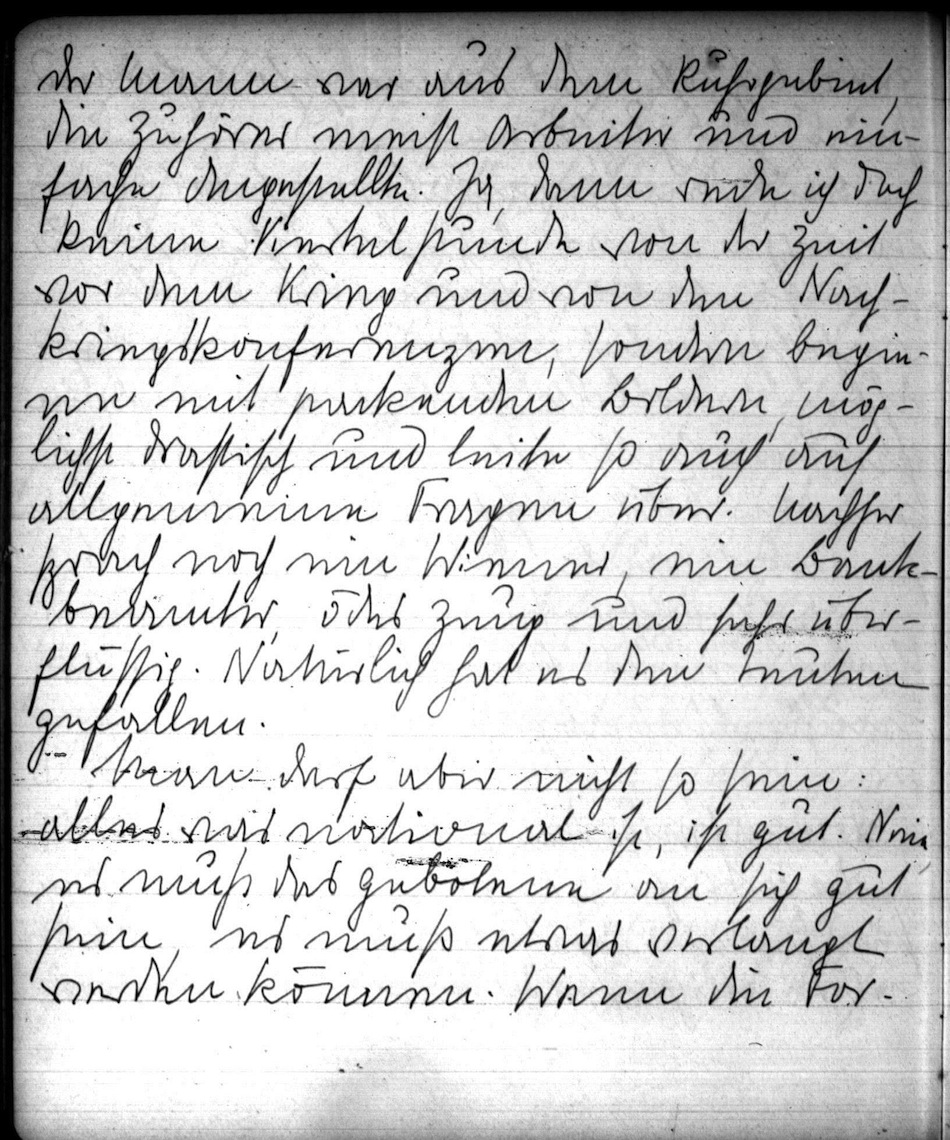 der Mann war aus dem Ruhrgebiet,
die Zuhörer meist Arbeiter und ein-
fache Angestellte. Ja, dann rede ich doch
keine Viertelstunde von der Zeit
vor dem Krieg und von den Nach-
kriegskonferenzen, sondern begin-
ne mit packenden Bildern, mög-
lichst drastisch und leite so auch auf
allgemeine Fragen über. Nachher
sprach noch ein Wiener, ein Bank-
beamter, ödes Zeug und sehr über-
flüssig. Natürlich hat es den Leuten
gefallen.
Man darf aber nicht so sein:
alles was national ist, ist gut. Nein,
es muß das gebotene an sich gut
sein, es muß etwas verlangt
werden können. Wenn die For-